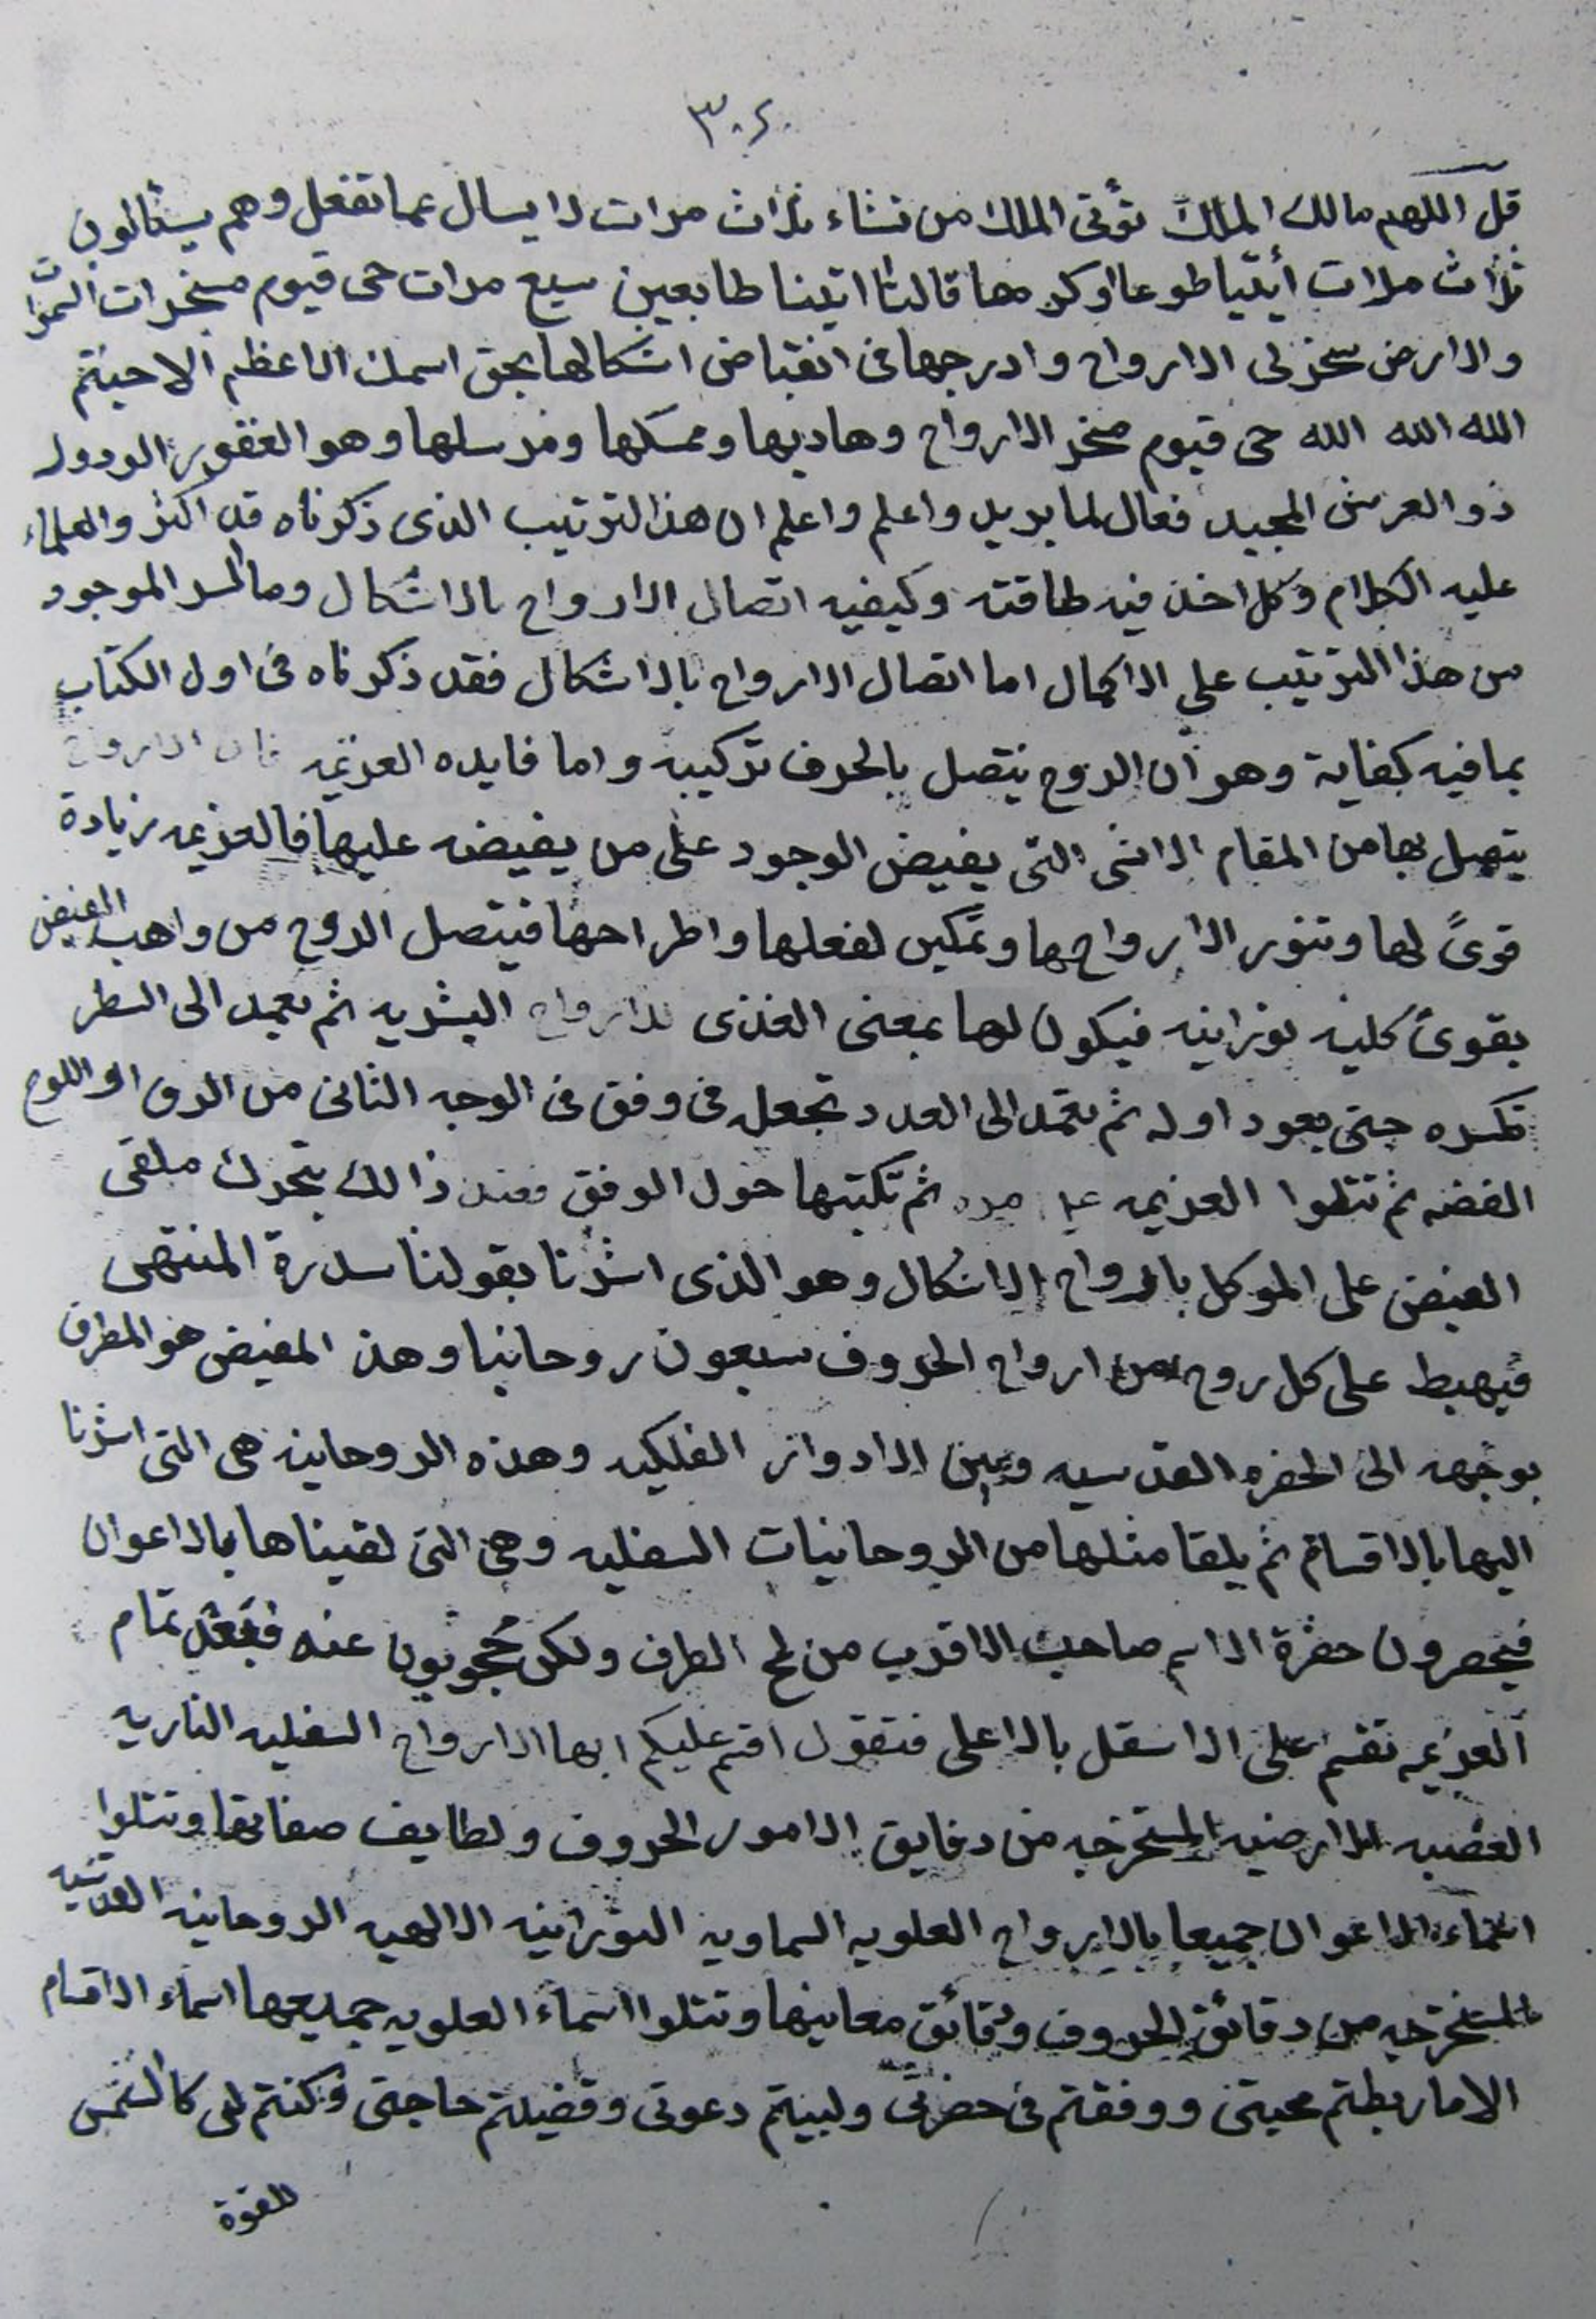 ٣٠٤
قل اللهم مالك الملك تؤتى الملك من تشاء ثلاث مرات لا يسال عما تفعل وهم يسئالون
ثلاث مرات أيتيا طوعا اوكرها قالتا اتينا طايعين سبع مرات حى قيوم مسخر السموات
والارض سخر لى الارواح وادرجها فى انقباض اشكالها بحق اسمك الاعظم الا اجبتم
الله الله الله حى قيوم مسخر الارواح وهاديها وممسكها ومرسلها وهو الغفور الودود
ذو العرش المجيد فعال لما يريد واعلم واعلم ان هذا الترتيب الذى ذكرناه قد اكثروا العلماء
عليه الكلام وكل اخذ فيه طاقته وكيفيه اتصال الارواح بالاشكال وما السر الموجود
من هذا الترتيب على الاكمال اما اتصال الارواح بالاشكال فقد ذكرناه فى اول الكتاب
بما فيه كفاية وهو ان الروح يتصل بالحرف تركيبه واما فايده العزيمه فان الارواح
يتصل بها من المقام الاسنى التى يفيض الوجود على من يفيضه عليها فالعزيمه زيادة
قوىً لها وتنور الارواح بها وتمكين لفعلها واطراحها فيتصل الروح من واهب الفيض
بقوىً كليه نورانيه فيكون لها بمعنى الغذى للارواح البشريه ثم تعمد الى السطر
تكسره حتى يعود اوله ثم تعمد الى العدد تجعله فى وفق فى الوجه الثانى من الرق او اللوح
الفضه ثم تتلوا العزيمه ثم تكتبها حول الوفق فعند ذالك يتحرك ملقى
الفيض على الموكل بالارواح الاشكال وهو الذى اشرنا بقولنا سدرة المنتهى
فيهبط على كل روح من ارواح الحروف سبعون روحانيا وهذ المفيض هو المطرق
بوجهه الى الحضره القدسيه وبين الادوار الفلكيه وهذه الروحانيه هى التى اشرنا
اليها بالاقسام ثم يلقا مثلها من الروحانيات السفليه وهى التى لقيناها بالاعوان
فيحضرون حضرة الاسم صاحب الاقرب من لمح الطرف ولكن مُحجوبون عنه فبعد تمام
العزيمه تقسم على الاسفل بالاعلى فتقول اقسم عليكم ايها الارواح السفليه الناريه
الغضبيه الارضيه المستخرجه من دقايق الامور الحروف ولطايف صفاتها وتتلوا
اسماء الاعوان جميعا بالارواح العلويه السماويه النورانيه الالهيه الروحانيه القدسيه
المستخرجه من دقائق الحروف ودقائق معانيها وتتلوا اسماء العلويه جميعها اسماء الاقسام
الا ما ربطتم محبتى ووفقتم فى حضرتى ولبيتم دعوتى وقضيتم حاجتى وكنتم لى كالشمس
للقوة